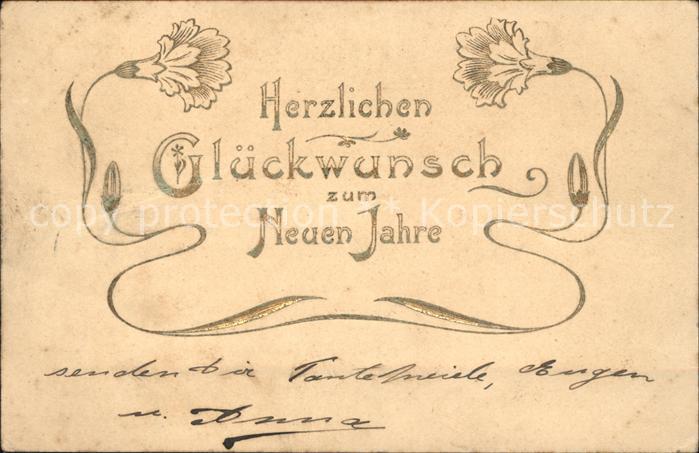 Herzlichen
Glückwunsch
zum
Neuen Jahre
copy protection * Kopierschutz
senden dir Tante , Eugen
u. Anna